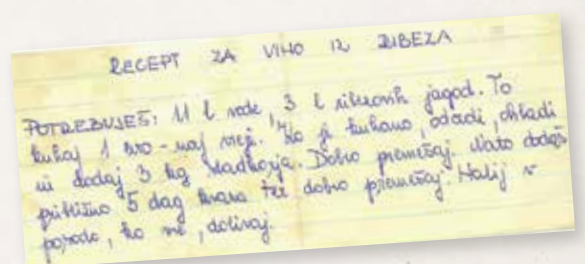 RECEPT ZA VINO IZ RIBEZA
POTREBUJEŠ: 11 l vode, 3 l ribezovih jagod. To
kuhaj 1 uro - naj vrejo. Ko je kuhano, odcedi, ohladi
in dodaj 3 kg sladkorja. Dobro premešaj. Nato dodaš
približno 5 dag kvasa ter dobro premešaj. Nalij v
posodo, ko vre, dolivaj.